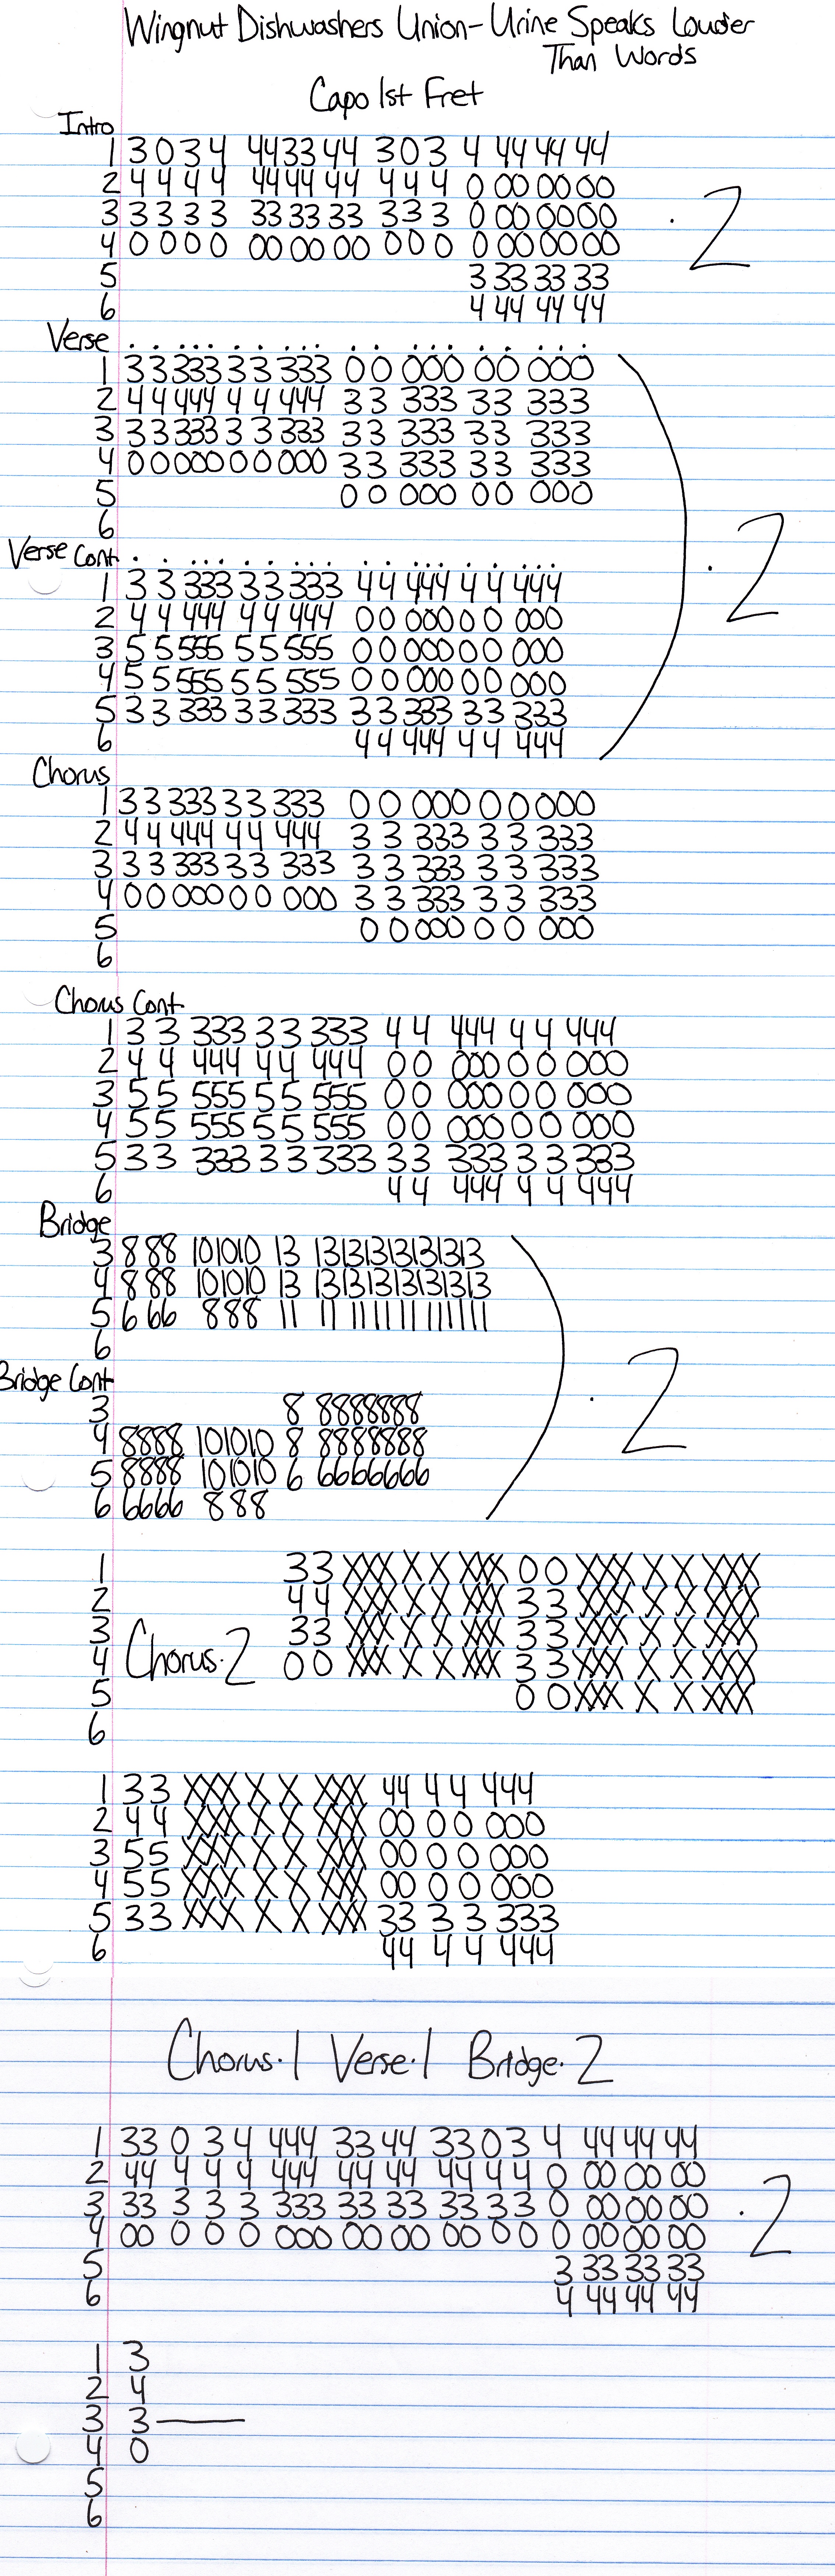 Wingnut Dishwashers Union - Urine Speaks Louder
Than Words
Capo 1st Fret
Intro
1 3 0 3 4 44 33 44 3 0 3 4 44 44 44
2 4 4 4 4 44 44 44 4 4 4 0 00 00 00
3 3 3 3 3 33 33 33 3 3 3 0 00 00 00
4 0 0 0 0 00 00 00 0 0 0 0 00 00 00
5 3 33 33 33
6 4 44 44 44
· 2
Verse
1 3 3 333 3 3 333 0 0 000 0 0 000
2 4 4 444 4 4 444 3 3 333 3 3 333
3 3 3 333 3 3 333 3 3 333 3 3 333
4 0 0 000 0 0 000 3 3 333 3 3 333
5 0 0 000 0 0 000
6
Verse Cont.
1 3 3 333 3 3 333 4 4 444 4 4 444
2 4 4 444 4 4 444 0 0 000 0 0 000
3 5 5 555 5 5 555 0 0 000 0 0 000
4 5 5 555 5 5 555 0 0 000 0 0 000
5 3 3 333 3 3 333 3 3 333 3 3 333
6 4 4 444 4 4 444
) · 2
Chorus
1 3 3 333 3 3 333 0 0 000 0 0 000
2 4 4 444 4 4 444 3 3 333 3 3 333
3 3 3 333 3 3 333 3 3 333 3 3 333
4 0 0 000 0 0 000 3 3 333 3 3 333
5 0 0 000 0 0 000
6
Chorus Cont
1 3 3 333 3 3 333 4 4 444 4 4 444
2 4 4 444 4 4 444 0 0 000 0 0 000
3 5 5 555 5 5 555 0 0 000 0 0 000
4 5 5 555 5 5 555 0 0 000 0 0 000
5 3 3 333 3 3 333 3 3 333 3 3 333
6 4 4 444 4 4 444
Bridge
3 8 88 101010 13 13131313131313
4 8 88 101010 13 13131313131313
5 6 66 888 11 11 111111111111
6
Bridge Cont
3 8 8888888
4 8888 101010 8 8888888
5 8888 101010 6 6666666
6 6666 888
) · 2
Chorus · 2
1 33 XXX X X XXX 0 0 XXX X X XXX
2 44 XXX X X XXX 3 3 XXX X X XXX
3 33 XXX X X XXX 3 3 XXX X X XXX
4 00 XXX X X XXX 3 3 XXX X X XXX
5 0 0 XXX X X XXX
6
1 33 XXX X X XXX 44 4 4 444
2 44 XXX X X XXX 00 0 0 000
3 55 XXX X X XXX 00 0 0 000
4 55 XXX X X XXX 00 0 0 000
5 33 XXX X X XXX 33 3 3 333
6 44 4 4 444
Chorus · 1 Verse · 1 Bridge · 2
1 33 0 3 4 444 33 44 33 0 3 4 44 44 44
2 44 4 4 4 444 44 44 44 4 4 0 00 00 00
3 33 3 3 3 333 33 33 33 3 3 0 00 00 00
4 00 0 0 0 000 00 00 00 0 0 0 00 00 00
5 3 33 33 33
6 4 44 44 44
· 2
1 3
2 4
3 3 ——
4 0
5
6